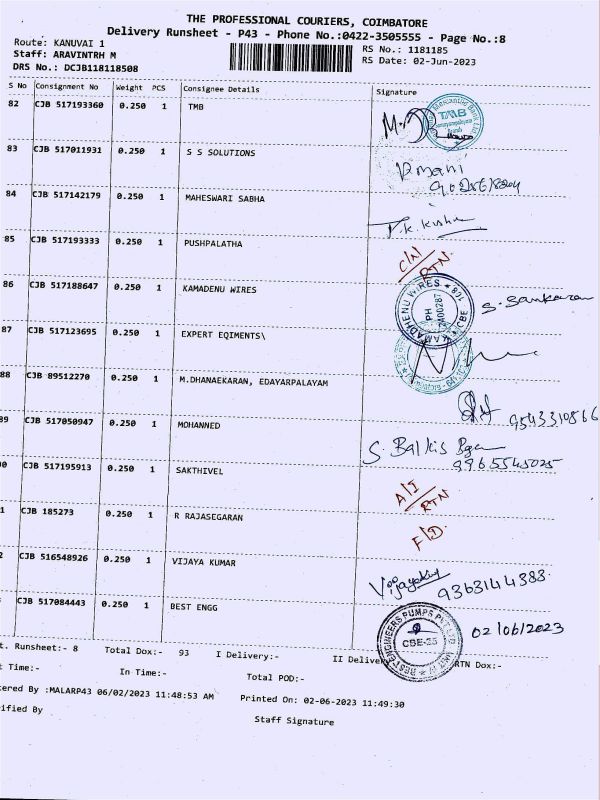 THE PROFESSIONAL COURIERS, COIMBATORE
Delivery Runsheet - P43 - Phone No.:0422-3505555 - Page No.:8
Route: KANUVAI 1
RS No.: 1181185
Staff: ARAVINTRH M
RS Date: 02-Jun-2023
DRS No.: DCJB118118508
S No Consignment No Weight PCS Consignee Details Signature
82 CJB 517193360 0.250 1 TMB
TMB
83 CJB 517011931 0.250 1 S S SOLUTIONS
84 CJB 517142179 0.250 1 MAHESWARI SABHA
85 CJB 517193333 0.250 1 PUSHPALATHA
RTN
86 CJB 517188647 0.250 1 KAMADENU WIRES
KAMADHENU WIRES CBE
PH 2400287
S. Sankaran
87 CJB 517123695 0.250 1 EXPERT EQIMENTS\
88 CJB 89512270 0.250 1 M.DHANAEKARAN, EDAYARPALAYAM
9543310866
89 CJB 517050947 0.250 1 MOHANNED
S Balkis
9965545025
0 CJB 517195913 0.250 1 SAKTHIVEL
A/I
RTN
1 CJB 185273 0.250 1 R RAJASEGARAN
F/D.
2 CJB 516548926 0.250 1 VIJAYA KUMAR
9363144383
CJB 517084443 0.250 1 BEST ENGG
BEST ENGINEERS PUMPS PVT LTD UNIT IV
CBE-25
02/06/2023
t. Runsheet:- 8 Total Dox:- 93 I Delivery:- II Delivery RTN Dox:-
t Time:- In Time:- Total POD:-
tered By :MALARP43 06/02/2023 11:48:53 AM Printed On: 02-06-2023 11:49:30
rified By Staff Signature